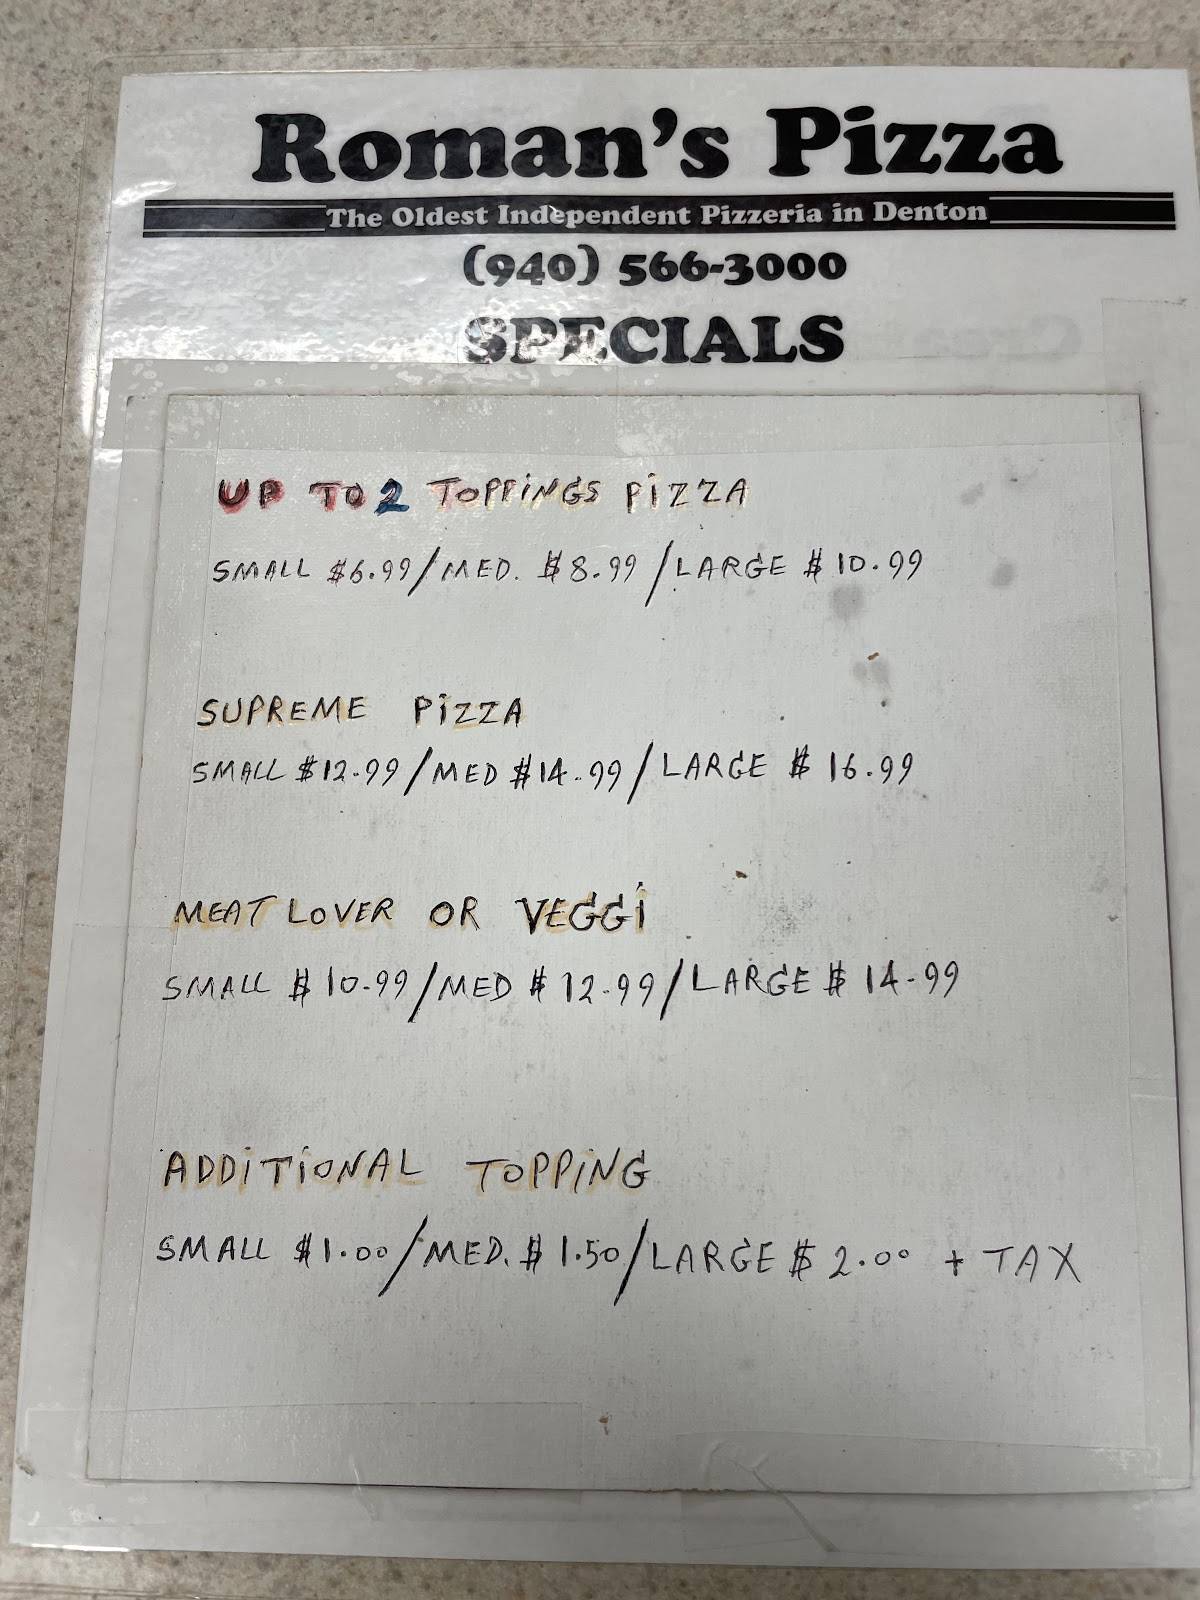 Roman's Pizza
The Oldest Independent Pizzeria in Denton
(940) 566-3000
SPECIALS
UP TO 2 TOPPINGS PIZZA
SMALL $6.99/MED. $8.99/LARGE $10.99
SUPREME PIZZA
SMALL $12.99/MED $14.99/LARGE $16.99
MEAT LOVER OR VEGGI
SMALL $10.99/MED $12.99/LARGE $14.99
ADDITIONAL TOPPING
SMALL $1.00/MED. $1.50/LARGE $2.00 + TAX